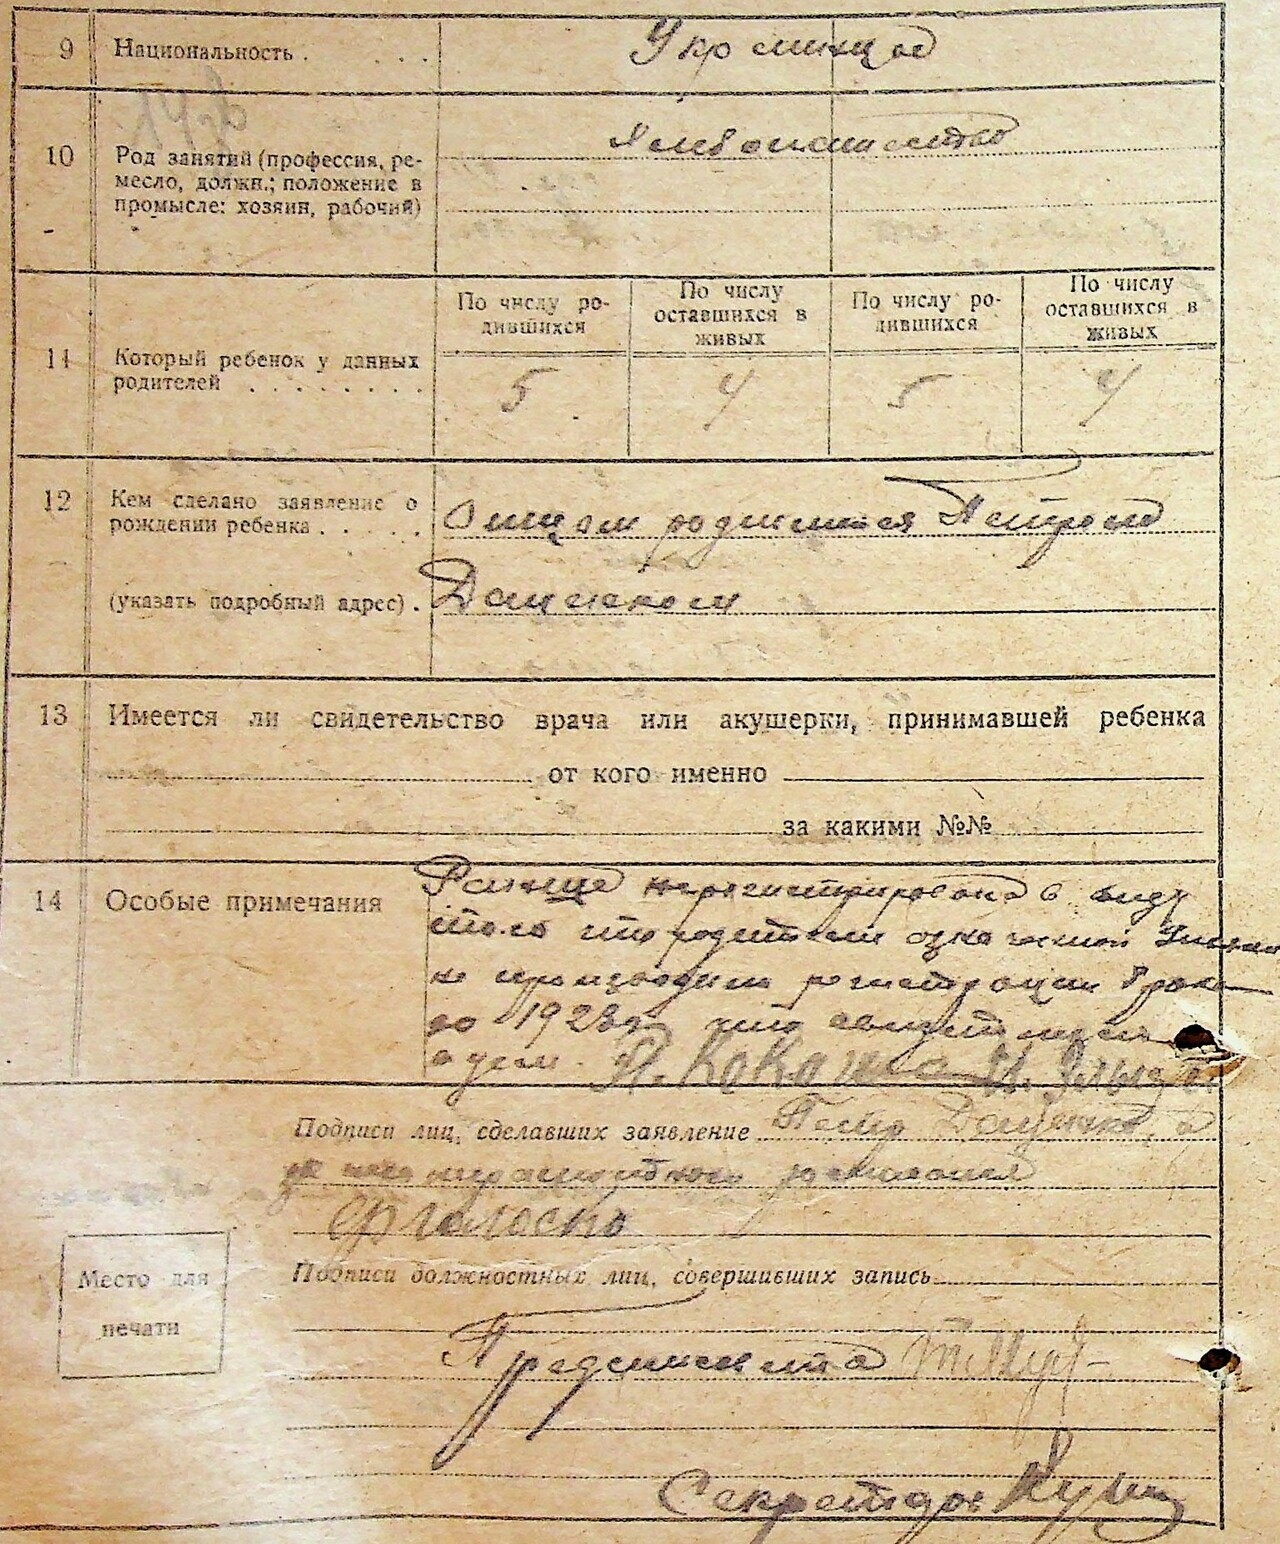 9 Национальность . . . . Украинцы
10 Род занятий (профессия, ре-
месло, должн.; положение в
промысле: хозяин, рабочий)
Хлебопашество
По числу ро-
дившихся
По числу
оставшихся в
живых
По числу ро-
дившихся
По числу
оставшихся в
живых
11 Который ребенок у данных
родителей . . . . . . . .
5 4 5 4
12 Кем сделано заявление о
рождении ребенка . . . . .
Отцом родившейся Петром
(указать подробный адрес) .
Даценком
13 Имеется ли свидетельство врача или акушерки, принимавшей ребенка
от кого именно
за какими №№
14 Особые примечания
Раньше нерегистрирована в виду
того что родители означенной
не производили регистрации брака
до 1923г что
Подписи лиц, сделавших заявление Петр Даценко, а
за него неграмотного расписался
Подписи должностных лиц, совершивших запись
Место для
печати
Предсельсовета
Секретарь